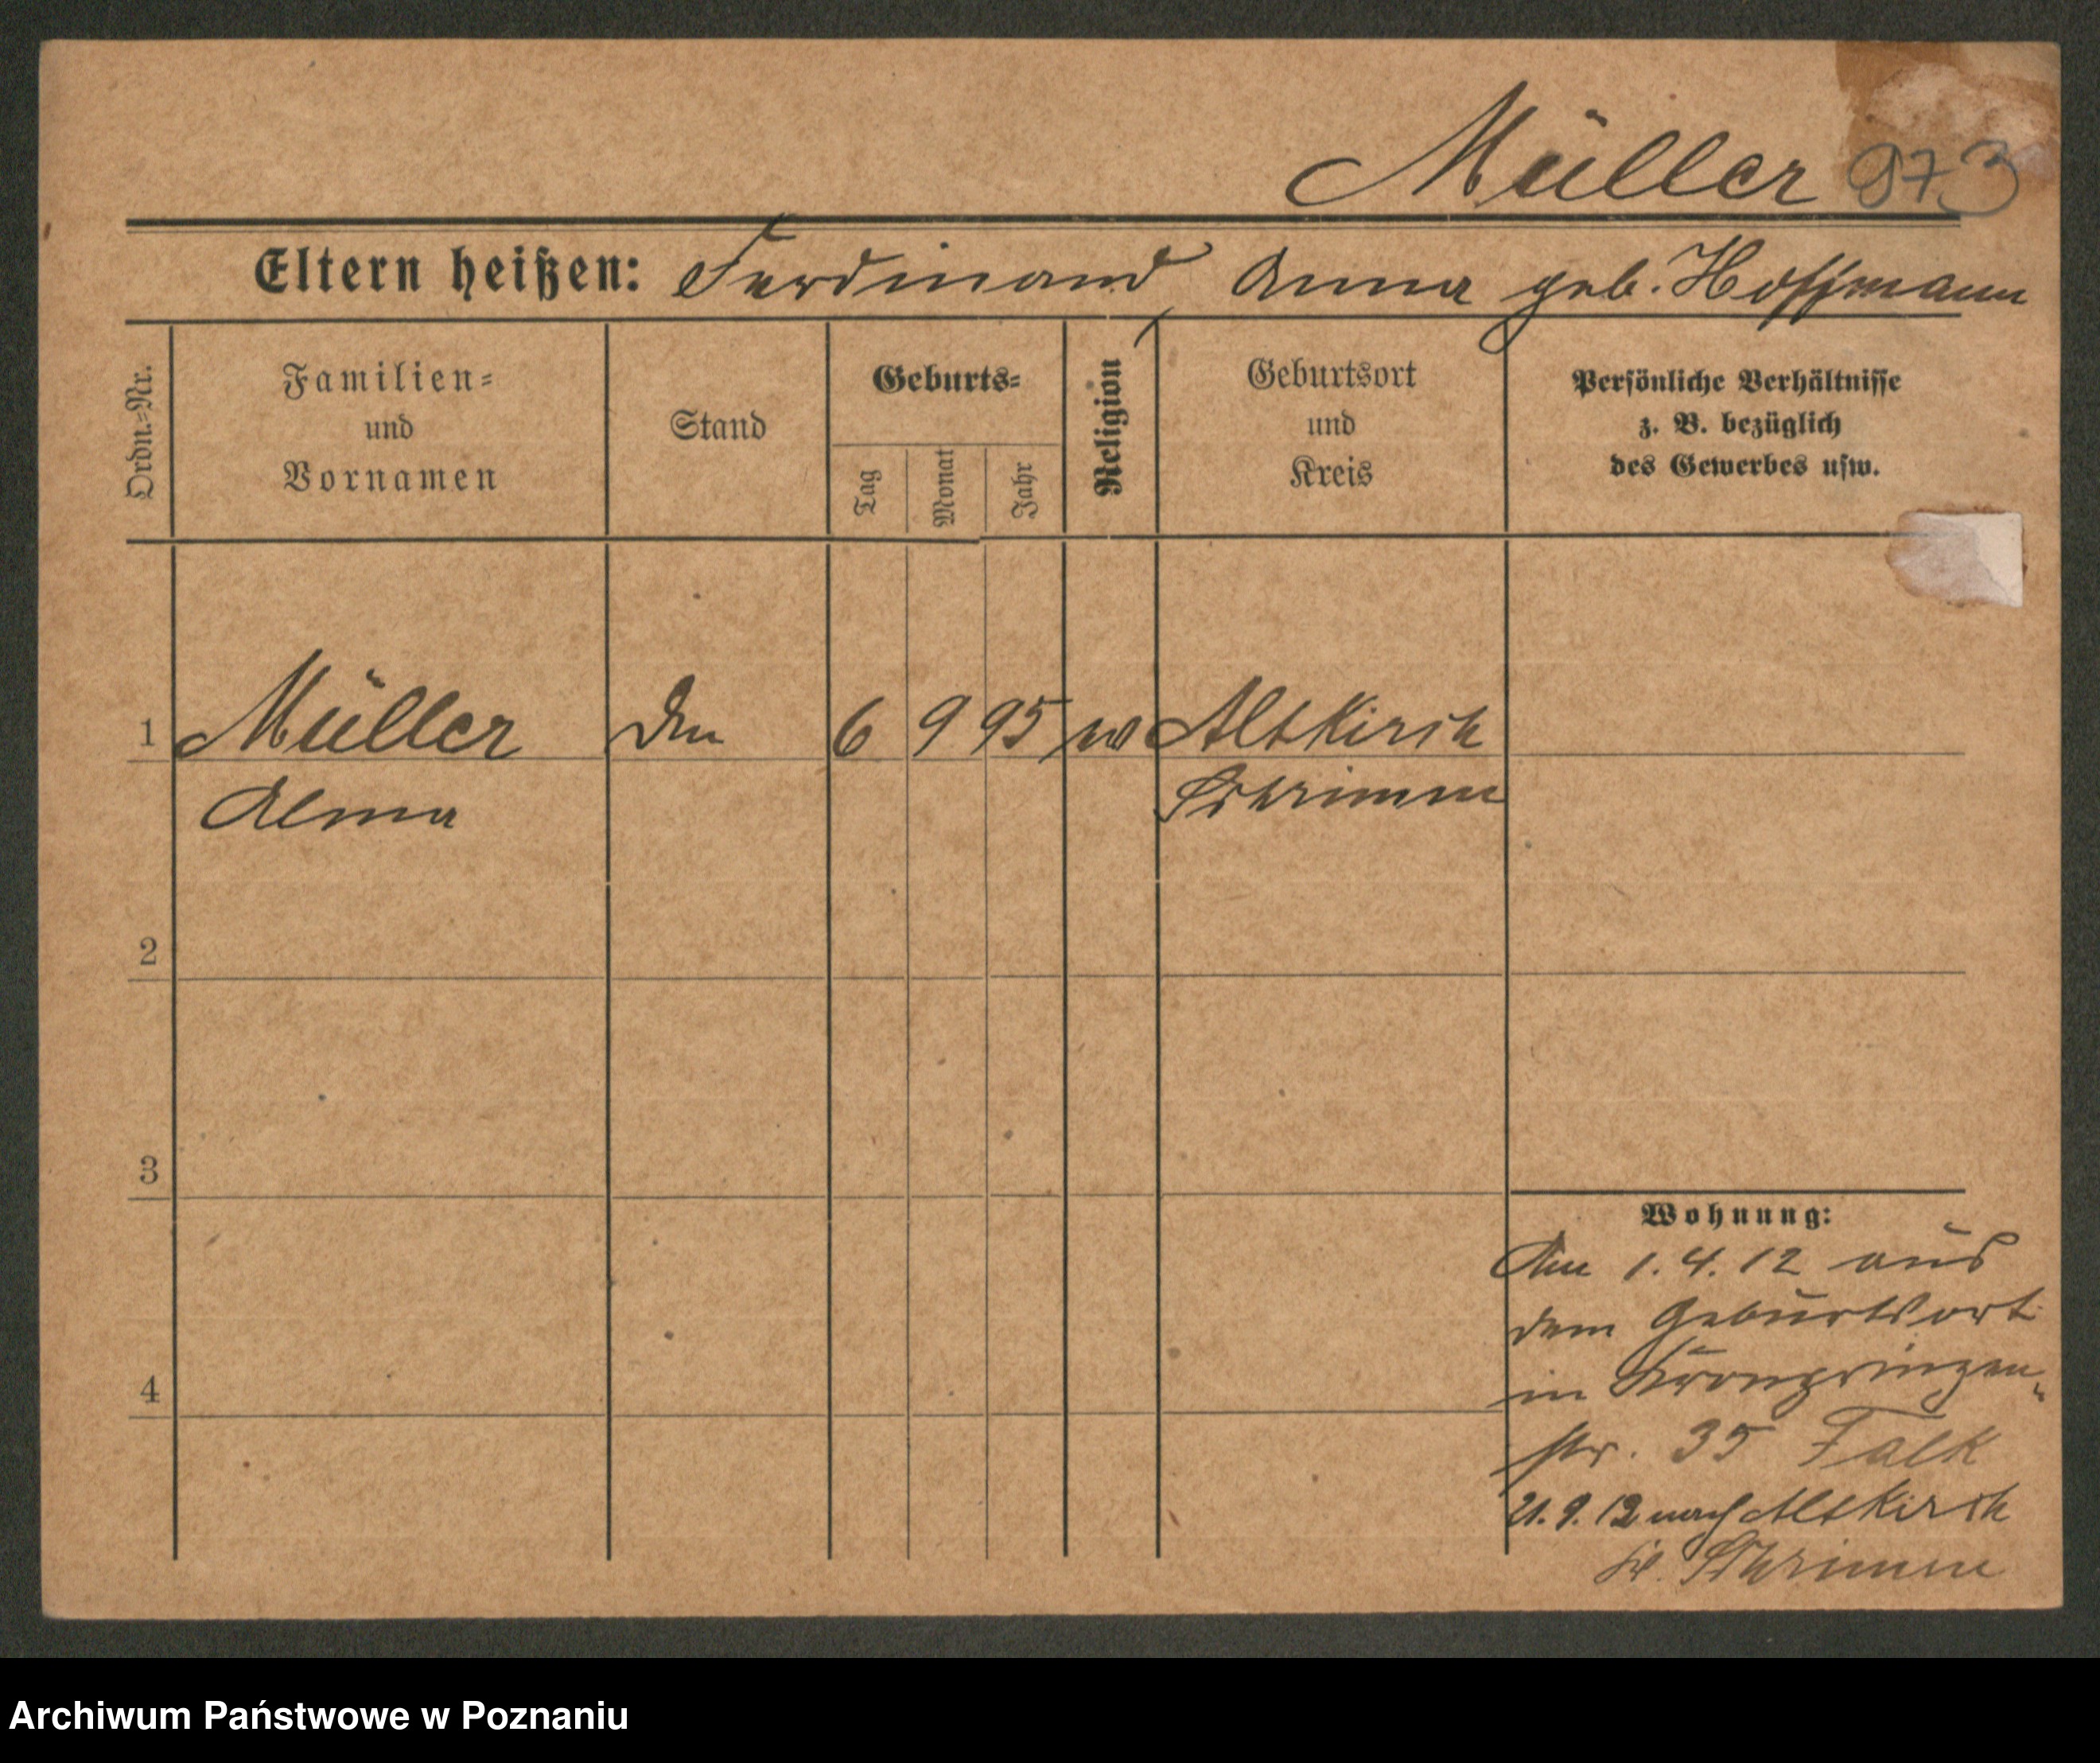 Müller 973
Eltern heißen: Ferdinand, Anna geb. Hoffmann
Ordn.-Nr.
Familien-
und
Vornamen
Stand
Geburts-
Tag
Monat
Jahr
Religion
Geburtsort
und
Kreis
Persönliche Verhältnisse
z. B. bezüglich
des Gewerbes usw.
1 Müller 6 9 95 Altkirch
Alma Schrimm
2
3
4
Wohnung:
Am 1.4.12 aus
dem Geburtsort
in Kronprinzen-
str. 35 Falk
21.9.12 nach Altkirch
Schrimm
Archiwum Państwowe w Poznaniu